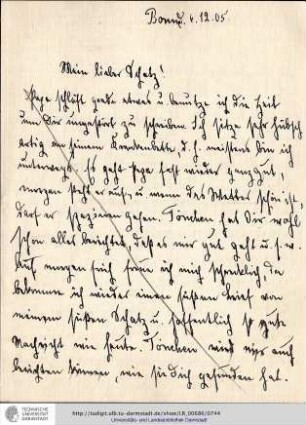 Bonn, d. 4.12.05
Mein lieber Schatz!
Papa schläft grade etwas u. benutze ich die Zeit
um Dir ungestört zu schreiben. Ich sitze sehr hübsch
artig an seinem Krankenbette, d. h. meistens bin ich
unterwegs. Es geht Papa fast wieder ganz gut,
morgen steht er auf, u. wenn das Wetter schön ist,
darf er spazieren gehen. Tönchen hat Dir wohl
schon alles berichtet, daß es mir gut geht u. s. w.
Auf morgen früh freue ich mich schrecklich, da
bekomme ich wieder einen süßen Brief von
meinem süßen Schatz u. hoffentlich so gute
Nachricht wie heute. Tönchen wird mir auch
berichten können, wie sie dich gefunden hat.
TECHNISCHE
UNIVERSITÄT
DARMSTADT
http://tudigit.ulb.tu-darmstadt.de/show/LB_00686/0744
Universitäts- und Landesbibliothek Darmstadt